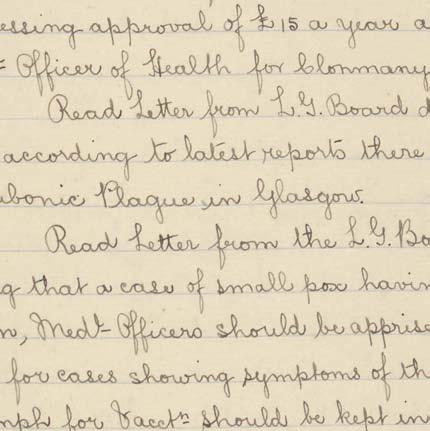 essing approval of £15 a year a
Officer of Health for Clonmany
Read Letter from L.G. Board d
according to latest reports there
ubonic Plague in Glasgow.
Read Letter from the L.G. Bo
g that a case of small pox havin
n, Medl- Officers should be apprise
for cases showing symptoms of th
mph for Vacctn should be kept in